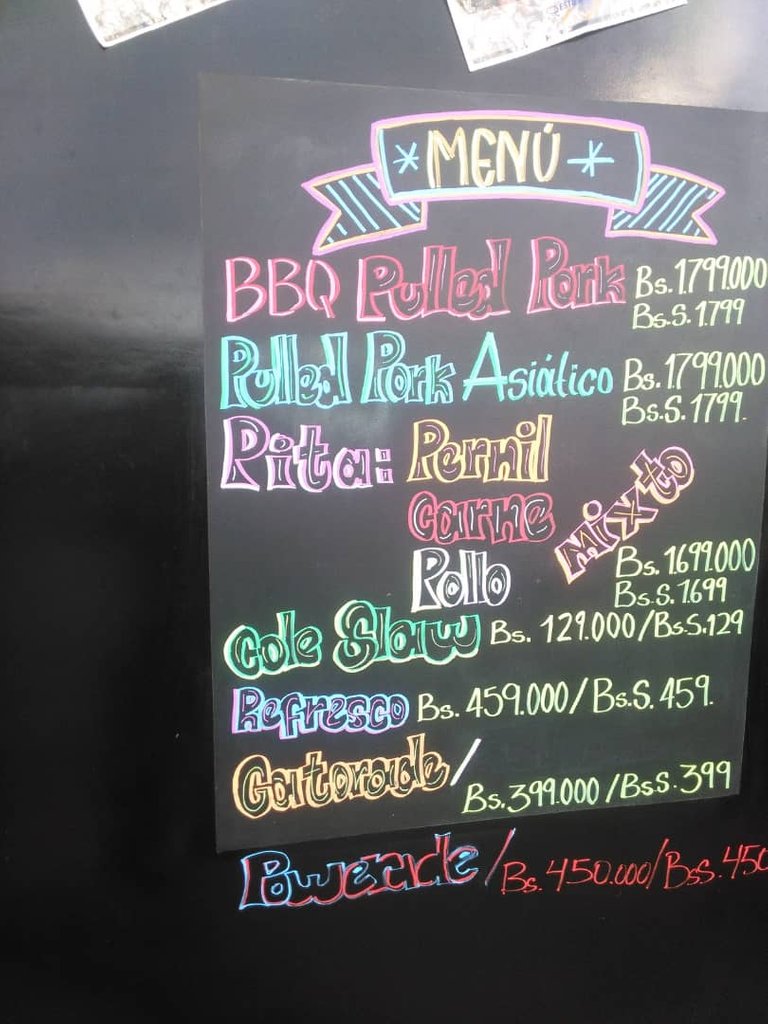 MENÚ
BBQ Pulled Pork Bs. 1.799.000
Bs.S. 1.799
Pulled Pork Asiático Bs. 1.799.000
Bs.S. 1799.
Pita: Pernil
Carne Mixto
Pollo Bs. 1.699.000
Bs.S. 1.699
Cole Slaw Bs. 129.000/Bs.S.129
Refresco Bs. 459.000/Bs.S. 459.
Gatorade/ Bs.399.000/BsS.399
Powerade/Bs.450.000/BsS.450